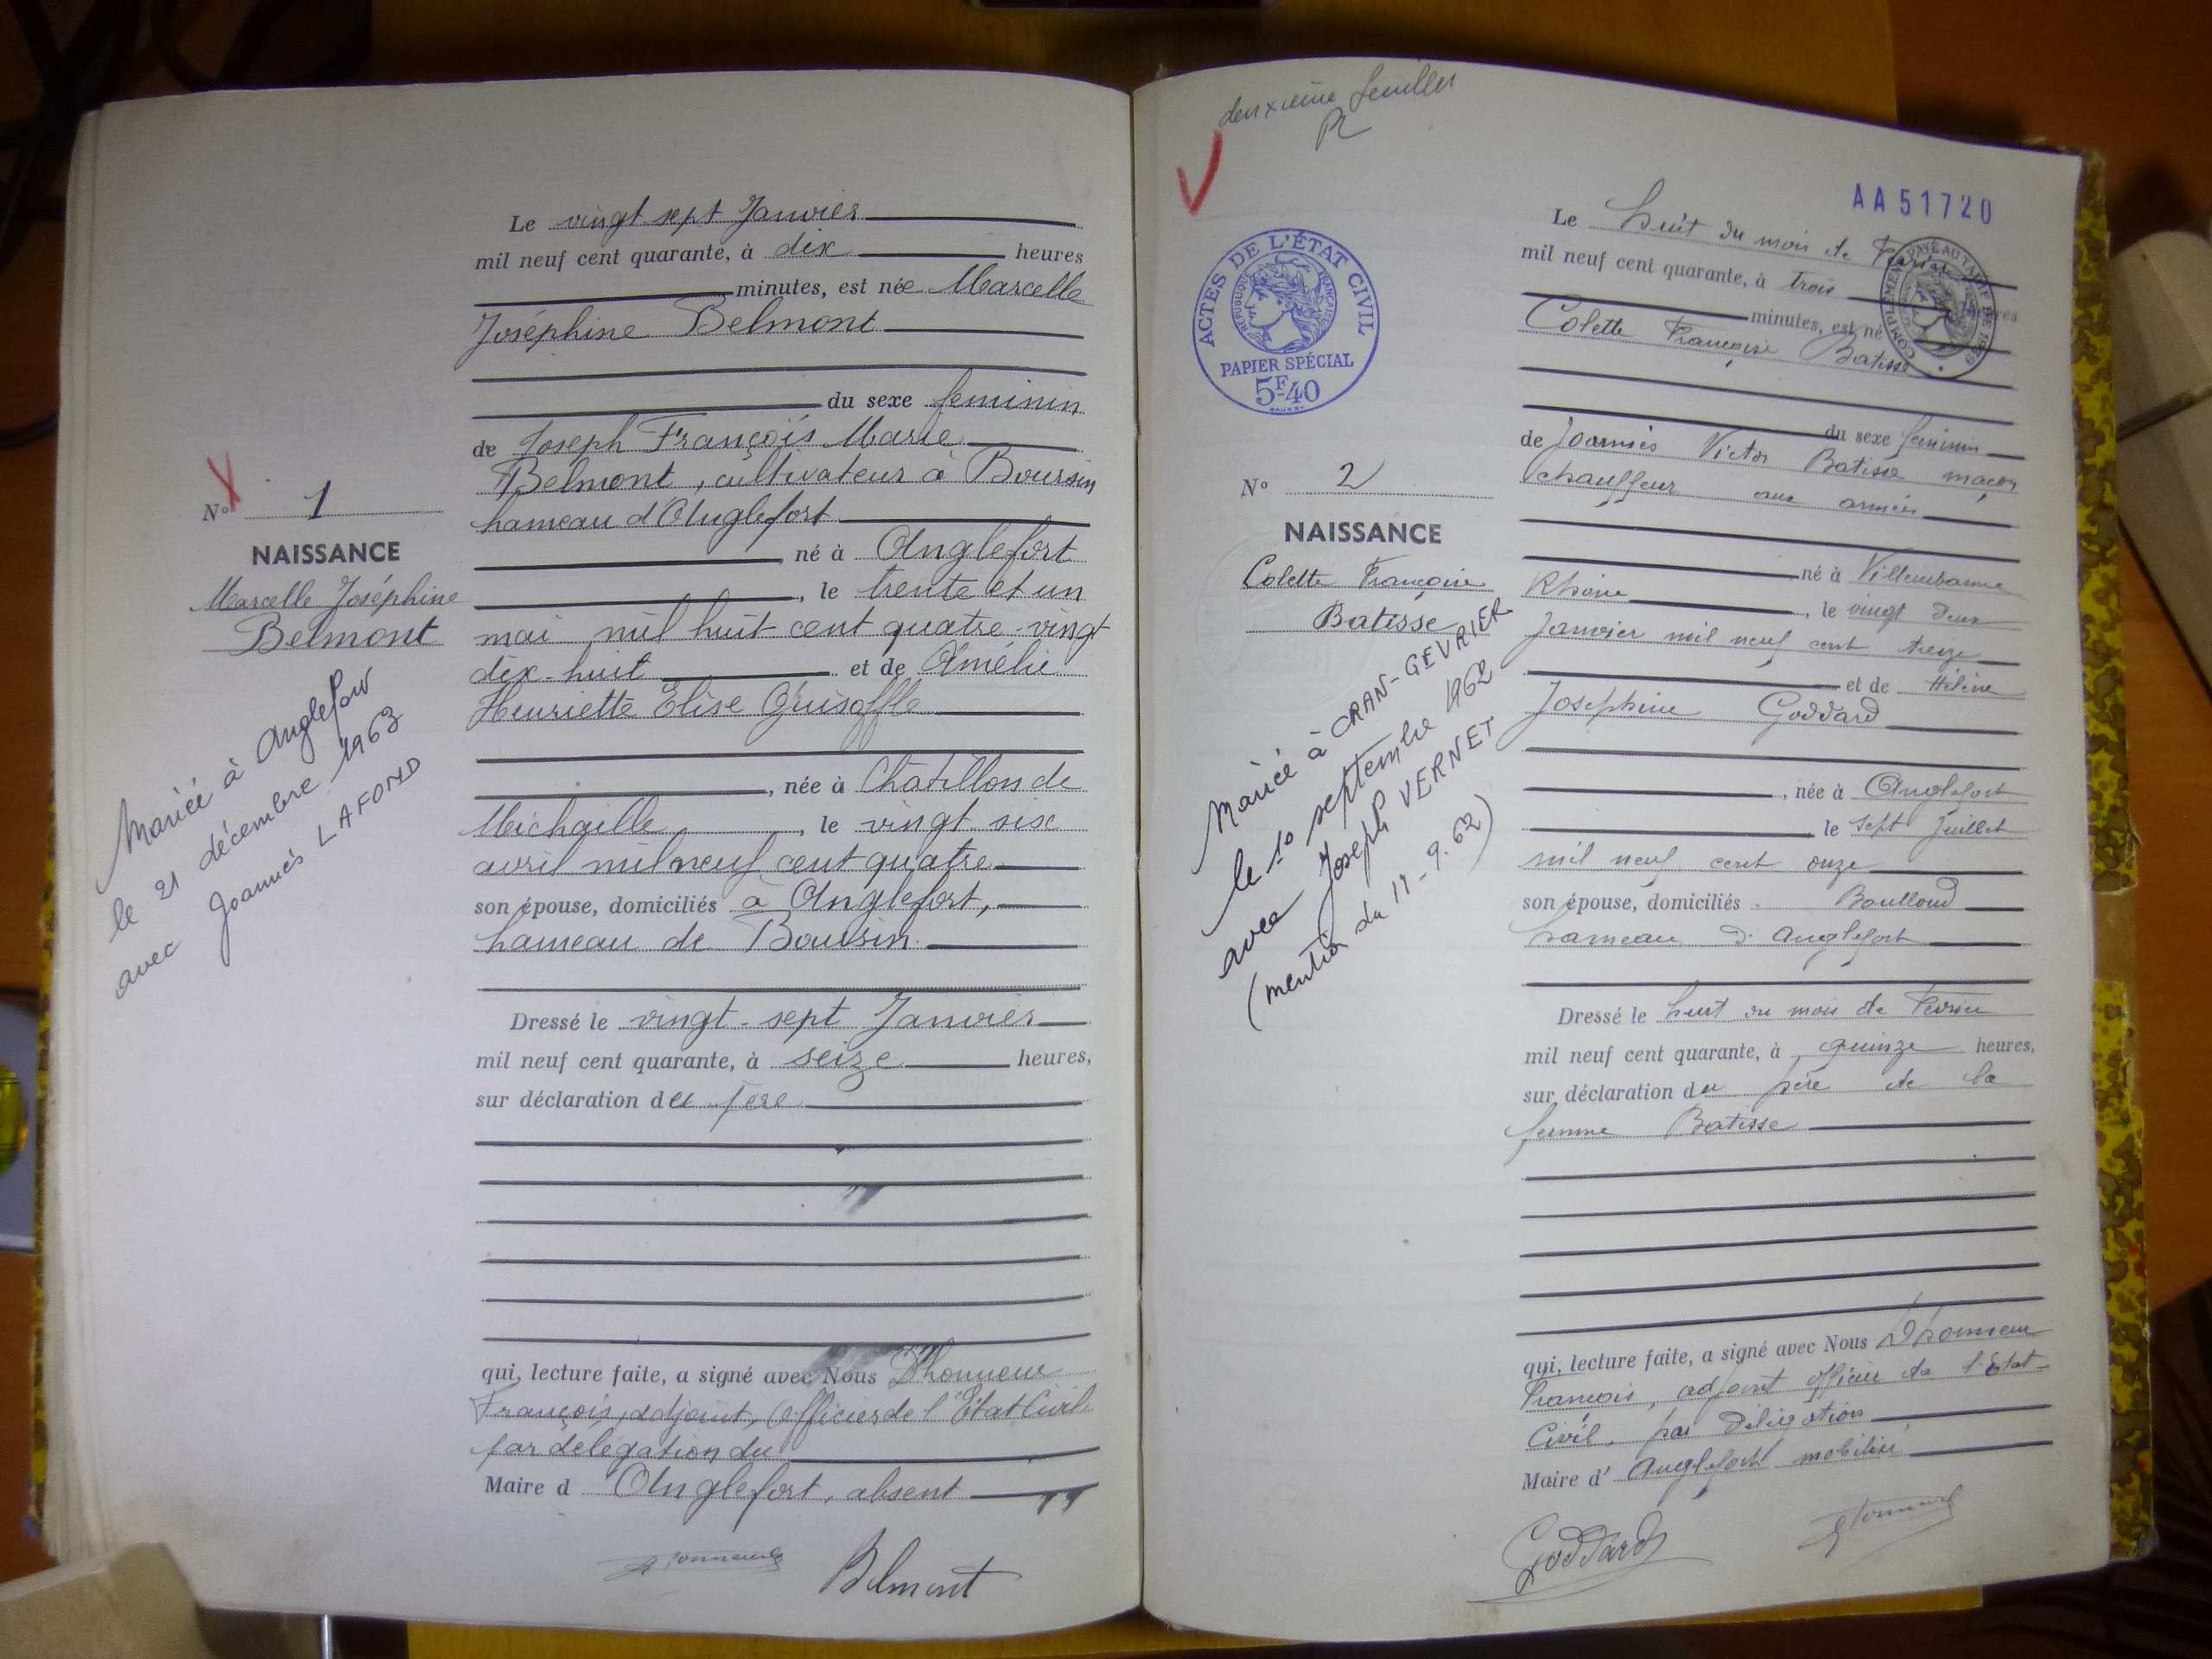 Le vingt sept Janvier
mil neuf cent quarante, à dix heures
minutes, est née Marcelle
Joséphine Belmont
du sexe feminin
de Joseph François Marie
Belmont, cultivateur à Boursin
hameau d'Anglefort
né à Anglefort
, le trente et un
mai mil huit cent quatre-vingt
dix-huit et de Amélie
Henriette Elise
, née à Chatillon de
Michaille, le vingt six
avril mil neuf cent quatre
son épouse, domiciliés à Anglefort,
hameau de Boursin.
Dressé le vingt-sept Janvier
mil neuf cent quarante, à seize heures,
sur déclaration du père
qui, lecture faite, a signé avec Nous Dhonneur
François, adjoint, Officier de l'Etat Civil
par délégation du
Maire d'Anglefort, absent
Belmont
N° 1
NAISSANCE
Marcelle Joséphine
Belmont
Mariée à Anglefort
le 21 décembre 1963
avec Joannès LAFOND
deuxième feuillet
AA51720
ACTES DE L'ÉTAT CIVIL
RÉPUBLIQUE FRANÇAISE
PAPIER SPÉCIAL
5F40
COMPLÉMENT PAYÉ AU TARIF DE 1939
Le huit du mois de Février
mil neuf cent quarante, à trois heures
minutes, est né
Colette Françoise Batisse
du sexe feminin
de Joannès Victor Batisse maçon
chauffeur aux armées
né à Villeurbanne
Rhône, le vingt deux
Janvier mil neuf cent treize
et de Hélène
Joséphine Goddard
, née à Anglefort
le sept Juillet
mil neuf cent onze
son épouse, domiciliés Boulloud
hameau d'Anglefort
Dressé le huit du mois de Février
mil neuf cent quarante, à quinze heures,
sur déclaration du père de la
femme Batisse
qui, lecture faite, a signé avec Nous Dhonneur
François, adjoint officier de l'Etat-
Civil, par délégation
Maire d'Anglefort mobilisé
Goddard
N° 2
NAISSANCE
Colette Françoise
Batisse
Mariée à CRAN-GEVRIER
le 1° septembre 1962
avec Joseph VERNET
(mention du 11-9.62)